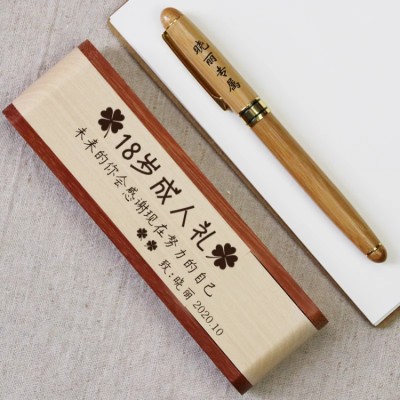 18岁成人礼
未来的你会感谢现在努力的自己
致:晓丽
2020.10
晓丽专属